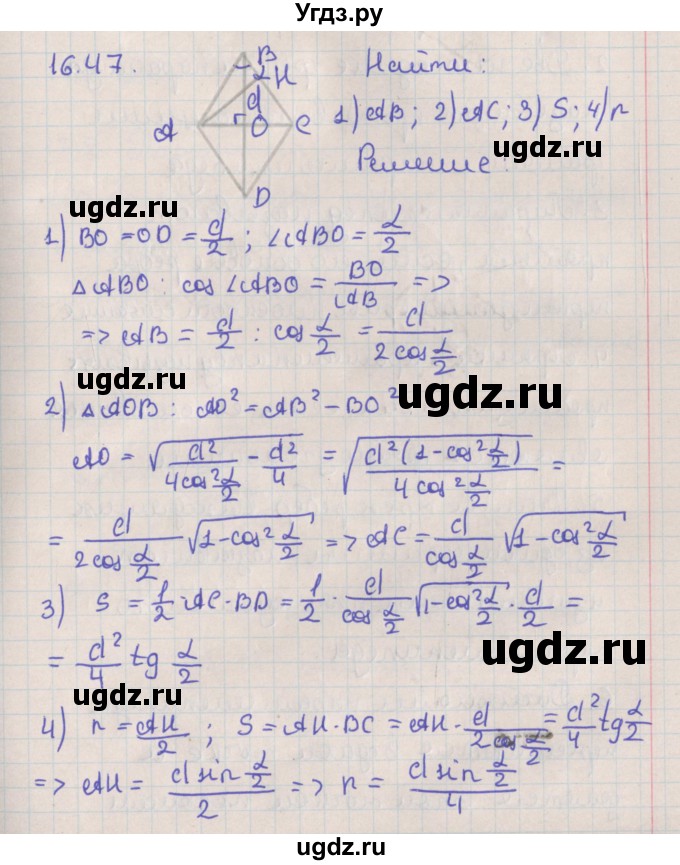 Угдз.ру
16.47.
B
α H
d
A
O
C
D
Найти:
1) AB; 2) AC; 3) S; 4) r
Решение:
ugdz.ru
1) BO = OD = d/2; ∠ABO = α/2
△ABO: cos ∠ABO = BO/AB =>
=> AB = d/2 : cos α/2 = d/(2 cos α/2)
ugdz.ru
ugdz.ru
2) △AOB: AO² = AB² - BO²
AO = √(d²/(4cos² α/2) - d²/4) = √(d²(1 - cos² α/2)/(4 cos² α/2)) =
= d/(2 cos α/2) √(1 - cos² α/2) => AC = d/(cos α/2) √(1 - cos² α/2)
ugdz.ru
3) S = 1/2 · AC · BD = 1/2 · d/(cos α/2) √(1 - cos² α/2) · d/2 =
= d²/4 tg α/2
ugdz.ru
ugdz.ru
4) r = AH/2; S = AH · BC = AH · d/(2 cos α/2) = d²/4 tg α/2
=> AH = (d sin α/2)/2 => r = (d sin α/2)/4
ugdz.ru
ugdz.ru
Угдз.ру